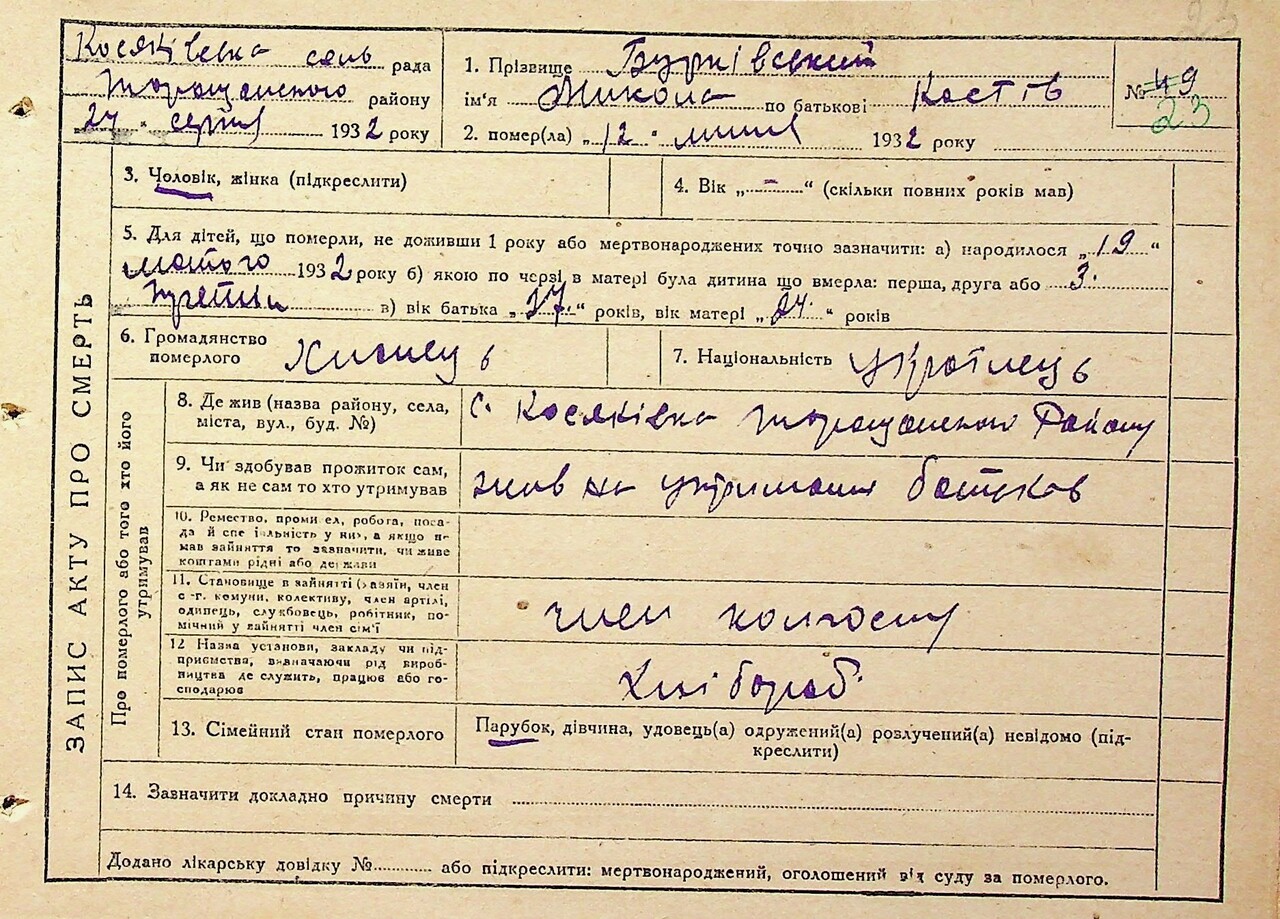 23
Косяківська сель рада
Таращанського району
27 " серпня 1932 року
1. Прізвище
ім'я Микола по батькові Костів
2. помер(ла) „12 " липня 1932 року
№ 49
23
3. Чоловік, жінка (підкреслити)
4. Вік „ - “ (скільки повних років мав)
5. Для дітей, що померли, не доживши 1 року або мертвонароджених точно зазначити: а) народилося „19“
лютого 1932 року б) якою по черзі в матері була дитина що вмерла: перша, друга або 3.
в) вік батька „27.“ років, вік матері „24“ років
6. Громадянство
померлого
7. Національність Українець
8. Де жив (назва району, села,
міста, вул., буд. №)
с. Косяківка Таращанського Району
9. Чи здобував прожиток сам,
а як не сам то хто утримував
жив на утриманні батьків
10. Ремество, проми ел, робота, поса-
да й спе іальність у ни, а якщо н-
мав зайняття то зазначити, чи живе
коштами рідні або держави
11. Становище в зайнятті (хазяїн, член
с -г. комуни, колективу, член артілі,
одипець, службовець, робітник, по-
мічний у зайнятті член сім'ї
член колгоспу
12 Назва установи, закладу чи під-
приємства, визначаючи рід вироб-
ництва де служить, працює або го-
сподарює
Хлібороб
13. Сімейний стан померлого
Парубок, дівчина, удовець(а) одружений(а) розлучений(а) невідомо (під-
креслити)
14. Зазначити докладно причину смерти
Додано лікарську довідку № або підкреслити: мертвонароджений, оголошений від суду за померлого.
ЗАПИС АКТУ ПРО СМЕРТЬ
Про померлого або того хто його
утримував